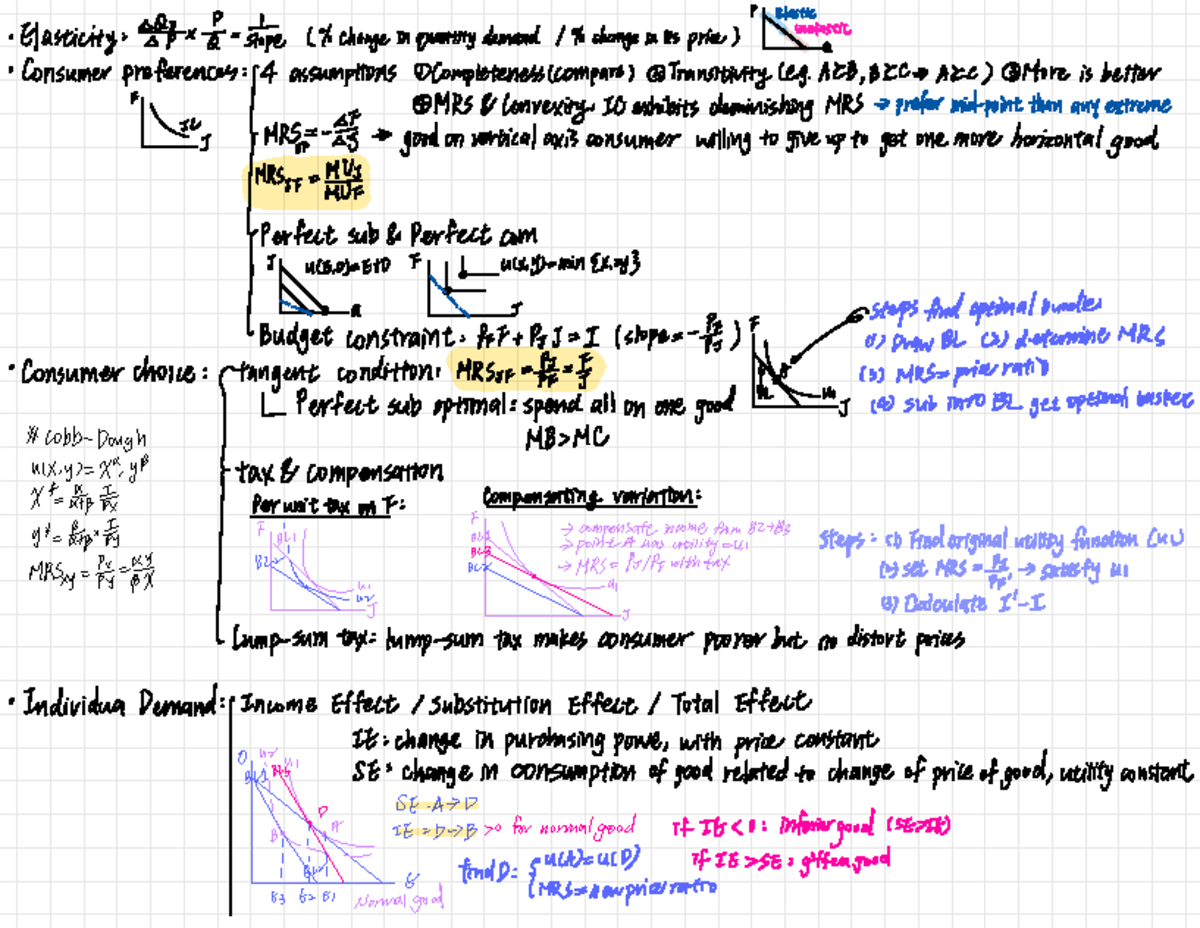 · Elasticity: ΔQ/ΔP × P/Q = 1/slope (% change in quantity demand / % change in its price)
P Elastic inelastic Q
· Consumer preferences: 4 assumptions ①Completeness(compare) ②Transitivity (e.g. A≥B, B≥C → A≥C) ③More is better
④MRS & Convexing. IC exhibits deminishing MRS → prefer mid-point than any extreme
F IC J
MRS = -ΔF/ΔJ → good on vertical axis consumer willing to give up to get one more horizontal good
MRS_JF = MU_J/MU_F
Perfect sub & Perfect com
J F u(x,y)=min{x,y} J
Budget constraint: P_F F + P_J J = I (slope = -P_F/P_J)
Steps find optimal bundle
(1) Draw BL (2) determine MRS
(3) MRS = price ratio
(4) sub into BL get optimal basket
F BL J
· Consumer choice: tangent condition: MRS_JF = P_J/P_F = F/J
Perfect sub optimal: spend all on one good
MB>MC
※ Cobb-Dough
u(x,y) = x^α, y^β
x* = α/α+β · I/Px
y* = β/α+β × I/Py
MRSxy = Px/Py = αy/βx
tax & compensation
Per unit tax on F:
F BL1 BL2 u1 u2 J
Compensating variation:
F BL1 BL3 BL2 u1 J
→ compensate income from BL2→BL3
→ point A has utility = u1
→ MRS = PJ/PF with tax
Steps: (1) Find original utility function (u1)
(2) set MRS = PJ/PF' → satisfy u1
(3) Calculate I'-I
Lump-sum tax: lump-sum tax makes consumer poorer but no distort prices
· Individua Demand: Income Effect / Substitution Effect / Total Effect
IE: change in purchasing powe, with price constant
SE: change in consumption of good related to change of price of good, utility constant
O u2 u1 D A B
SE: A→D
IE = D→B >0 for normal good
If IE<0: inferior good (SE>IE)
If IE>SE: giffen good
find D: { u(A)=u(D)
MRS = new price ratio
B3 B2 B1
Normal good